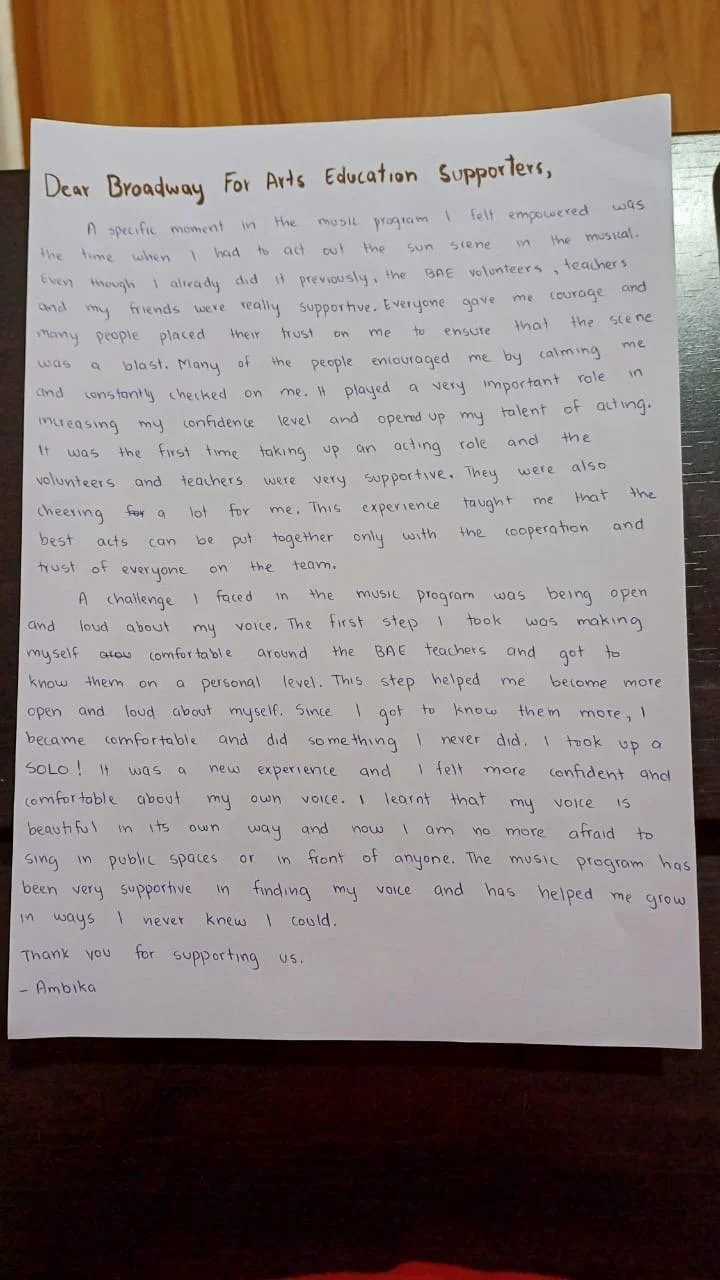 Dear Broadway For Arts Education Supporters,
A specific moment in the music program I felt empowered was
the time when I had to act out the sun scene in the musical.
Even though I already did it previously, the BAE volunteers, teachers
and my friends were really supportive. Everyone gave me courage and
many people placed their trust on me to ensure that the scene
was a blast. Many of the people encouraged me by calming me
and constantly checked on me. It played a very important role in
increasing my confidence level and opened up my talent of acting.
It was the first time taking up an acting role and the
volunteers and teachers were very supportive. They were also
cheering for a lot for me. This experience taught me that the
best acts can be put together only with the cooperation and
trust of everyone on the team.
A challenge I faced in the music program was being open
and loud about my voice. The first step I took was making
myself comfortable around the BAE teachers and got to
know them on a personal level. This step helped me become more
open and loud about myself. Since I got to know them more, I
became comfortable and did something I never did. I took up a
SOLO! It was a new experience and I felt more confident and
comfortable about my own voice. I learnt that my voice is
beautiful in its own way and now I am no more afraid to
sing in public spaces or in front of anyone. The music program has
been very supportive in finding my voice and has helped me grow
in ways I never knew I could.
Thank you for supporting us.
- Ambika